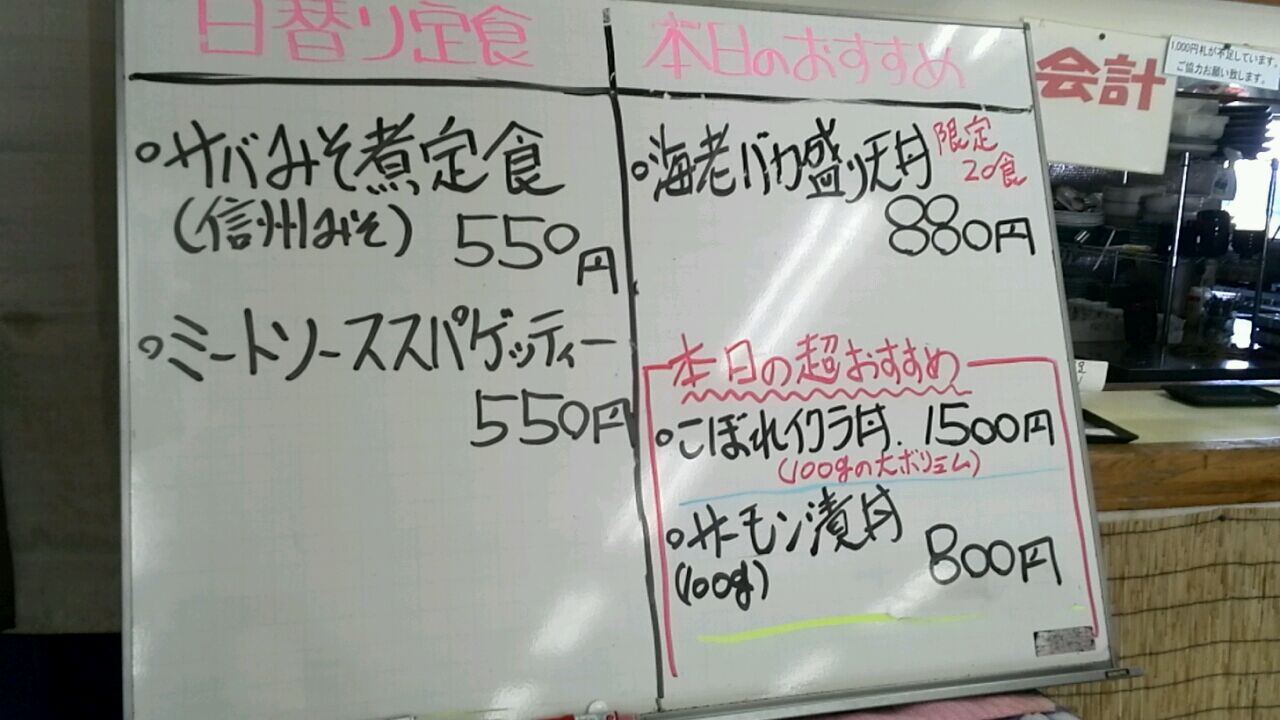 日替り定食
・サバみそ煮定食
(信州みそ) 550円
・ミートソーススパゲッティー
550円
本日のおすすめ
・海老バカ盛り天丼 限定
20食
880円
本日の超おすすめ
・こぼれイクラ丼. 1500円
(100gの大ボリュム)
・サーモン漬丼
(100g) 800円
会計
1,000円札が不足しています。
ご協力お願い致します。